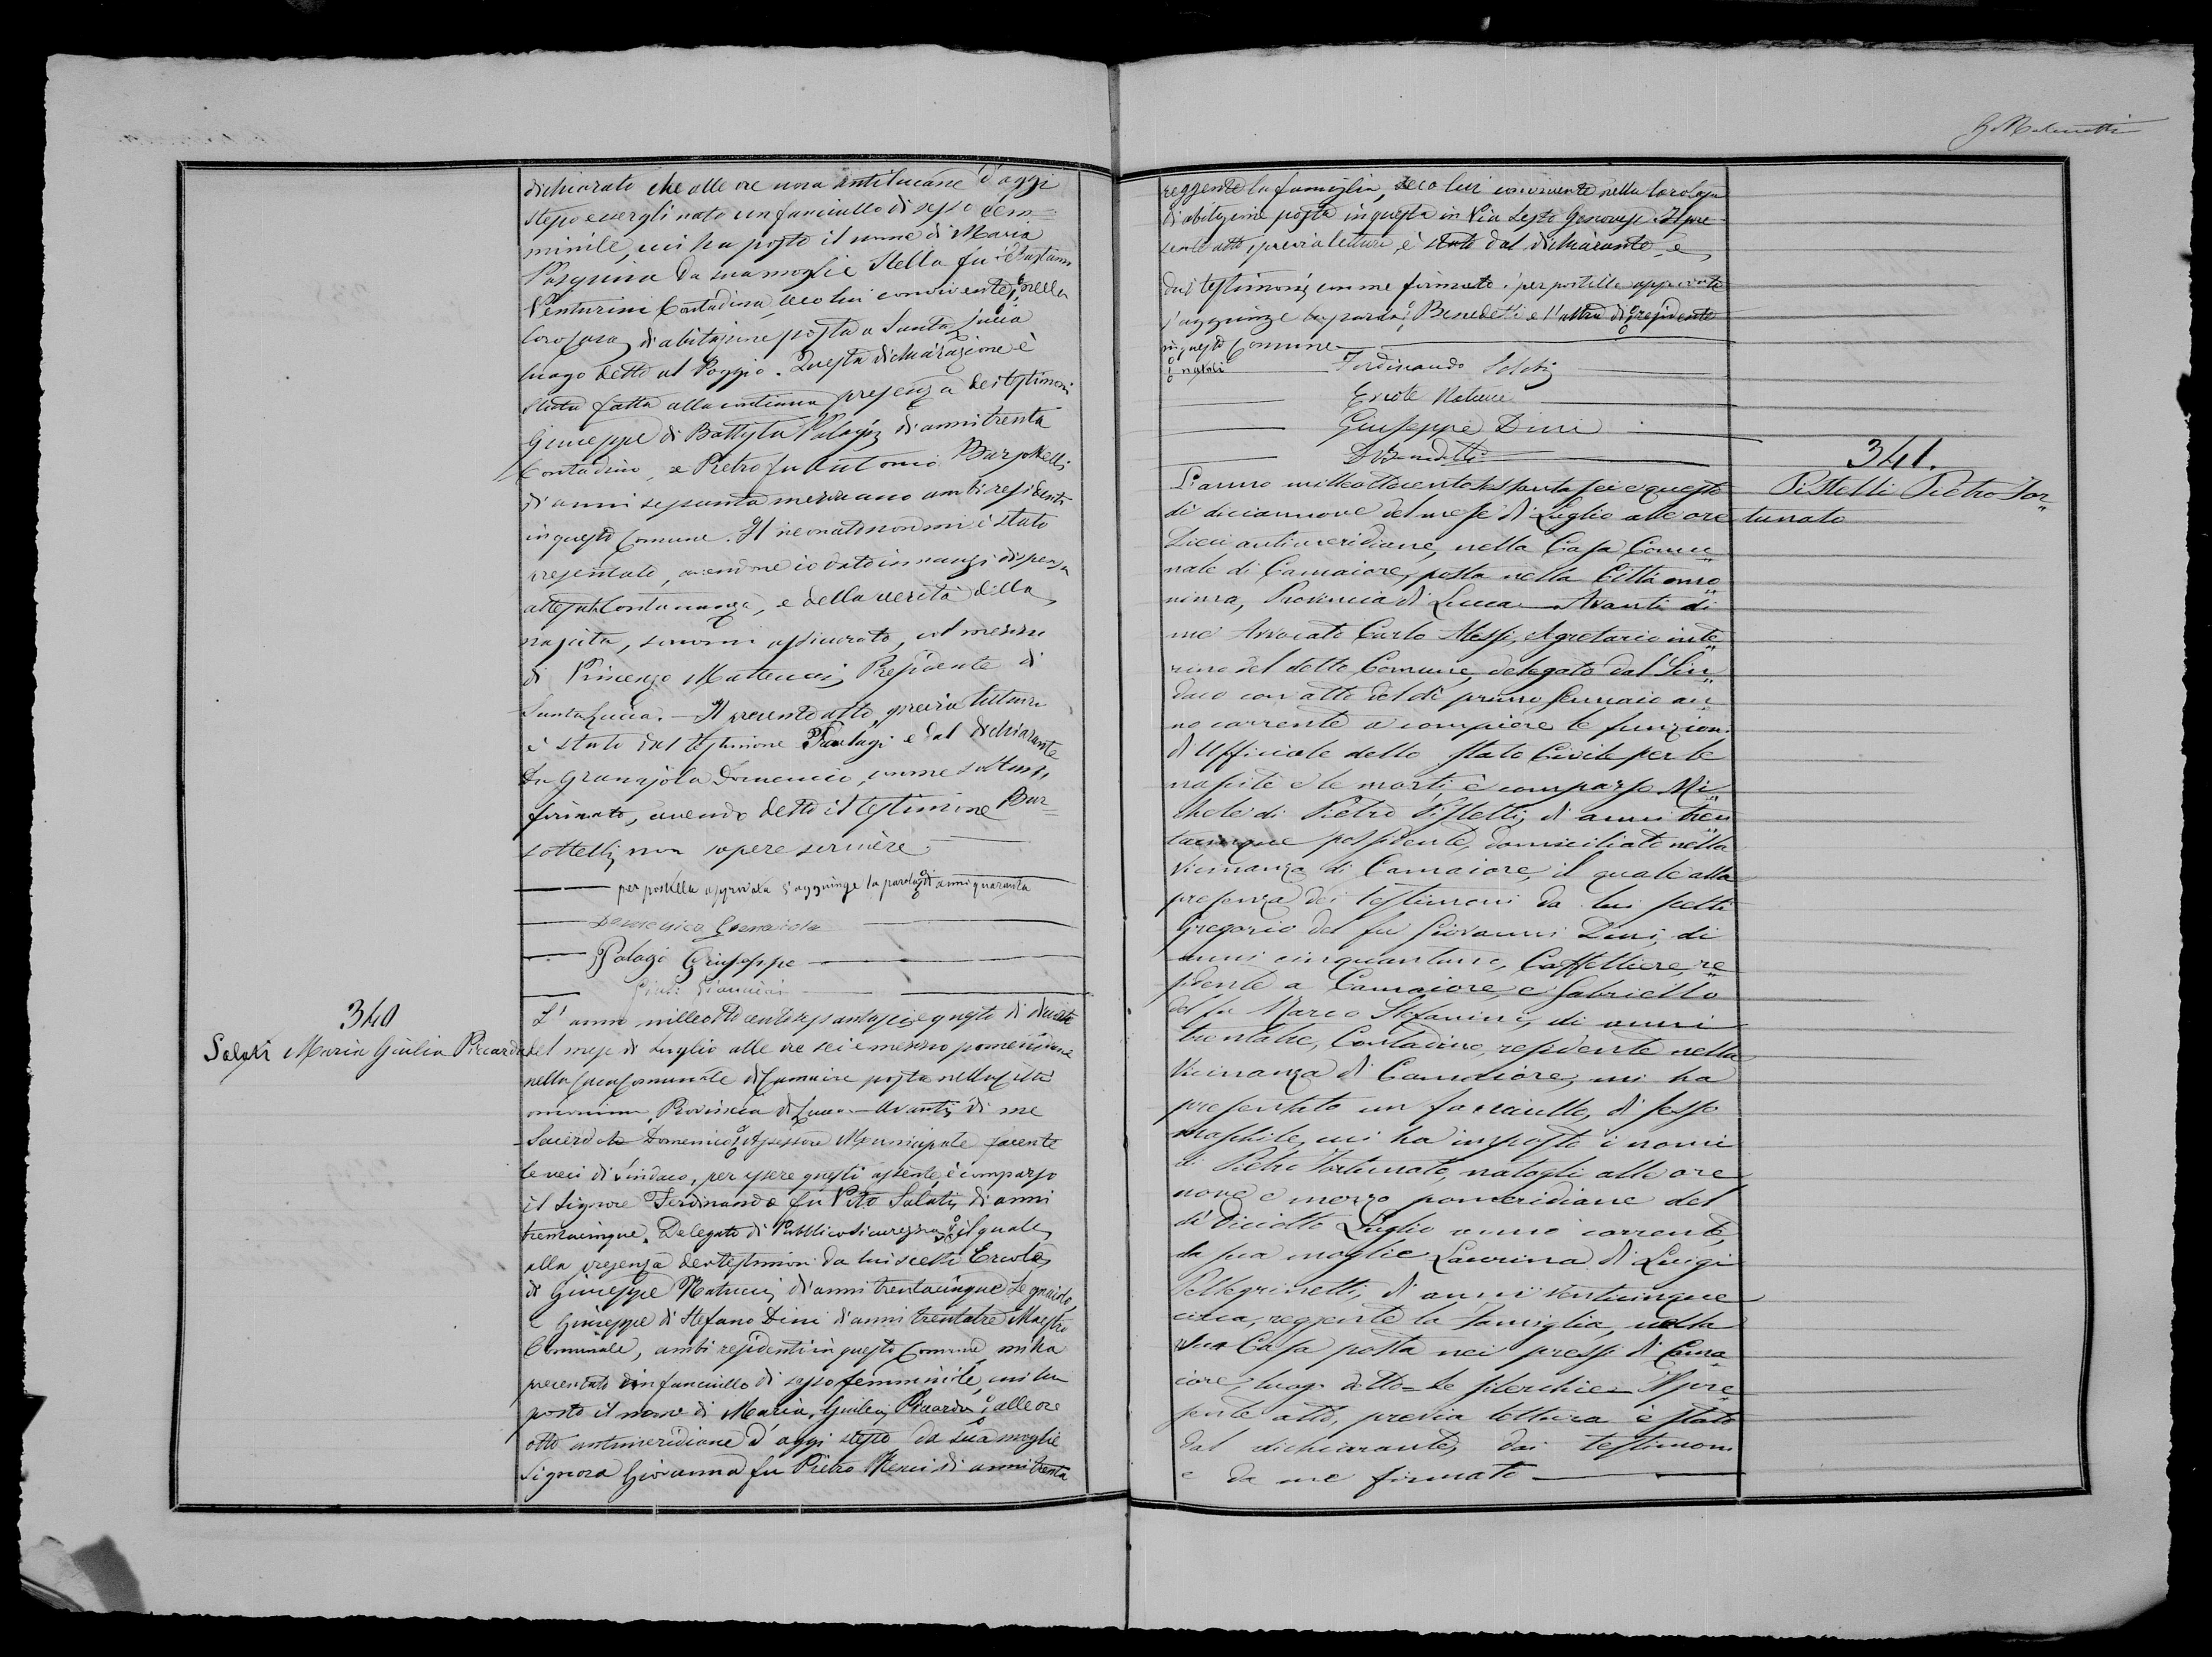 dichiarato che alle ore nona antilucane d'oggi
stesso essergli nato un fanciullo di sesso fem=
minile, cui ha posto il nome di Maria
Pasquina da sua moglie Stella fu
Venturini Contadina, seco lui convivente nella
loro Casa di abitazione posta a Santa Lucia
luogo detto al Poggio. Questa dichiarazione è
stata fatta alla continua presenza dei testimoni
Giuseppe di Battista Palagi di anni trenta
Contadino, e Pietro fu Antonio Bursottelli
di anni sessanta ambi residenti
in questo Comune. Il neonato non mi è stato
presentato, avendone io dato innanzi dispensa
attesa la lontananza, e della verità della
nascita, sonomi assicurato, col mezzo
di Vincenzo Matteucci, Presidente di
Santa Lucia. — Il presente atto, previa lettura
è stato dal testimone Palagi e dal dichiarante
Granajola Domenico, 
firmato, avendo detto il testimone Bur=
sottelli non sapere scrivere
per postilla approvata s'aggiunge la parola di anni quaranta
Domenico Granaiola
Palagi Giuseppe
340
Salati Maria Giulia Piccarda
L'anno milleottocentosessantasei e questo dì
del mese di Luglio alle ore sei e mezzo pomeridiane
nella Casa Comunale di Camaiore posta nella Città
omonima, Provincia di Lucca — Avanti di me
Sacerdote Domenico Assessore Municipale facente
le veci di Sindaco, per essere questi assente, è comparso
il Signore Ferdinando fu Vito Salati, di anni
trentacinque, Delegato di Pubblica Sicurezza il quale,
alla presenza dei testimoni da lui scelti Ercole
di Giuseppe Matucci, di anni trentacinque Legnaiolo,
e Giuseppe di Stefano Dini di anni trentatre Maestro
Comunale, ambi residenti in questo Comune, mi ha
presentato un fanciullo di sesso femminile, cui ha
posto il nome di Maria, Giulia, Piccarda, alle ore
otto antimeridiane d'oggi stesso da sua moglie
Signora Giovanna fu Pietro Renci di anni trenta
reggente la famiglia, seco lui convivente nella loro Casa
di abitazione posta in questa in Via Sesto Genovese. Il pre
sente atto, previa lettura, è stato dal dichiarante, e
dai testimoni con me firmato: per postilla approvata
s'aggiunge la parola: Benedetti e l'altra di residente
in questo Comune
natali
Ferdinando Salati
Ercole Matucci
Giuseppe Dini
D Benedetti
341.
Pistelli Pietro For„
tunato
L'anno milleottocentosessantasei e questo
dì diciannove del mese di Luglio alle ore
Dieci antimeridiane, nella Casa Comu„
nale di Camaiore, posta nella Città omo„
nima, Provincia di Lucca — Avanti di
me Avvocato Carlo Alessi, Segretario inte„
rino del detto Comune, delegato dal Sin„
daco con atto del dì primo Gennaio an„
no corrente a compiere le funzioni
di Ufficiale dello Stato Civile per le
nascite e le morti è comparso Mi„
chele di Pietro Pistelli, di anni tren„
tacinque possidente, domiciliato nella
Vicinanza di Camaiore, il quale alla
presenza dei testimoni da lui scelti
Gregorio del fu Giovanni Dini, di
anni cinquantuno, Caffettiere, re„
sidente a Camaiore, e Gabriello
del fu Marco Stefanini, di anni
trentatre, Contadino, residente nella
Vicinanza di Camaiore, mi ha
presentato un fanciullo, di sesso
maschile, cui ha imposto i nomi
di Pietro Fortunato, natogli alle ore
nove e mezzo pomeridiane del
dì diciotto Luglio anno corrente,
da sua moglie Laurina di Luigi
Pellegrinetti, di anni venticinque
circa, reggente la famiglia, nella
sua Casa posta nei pressi di Cama„
iore, luogo detto = le = Il pre„
sente atto, previa lettura è stato
dal dichiarante, dai testimoni
e da me firmato